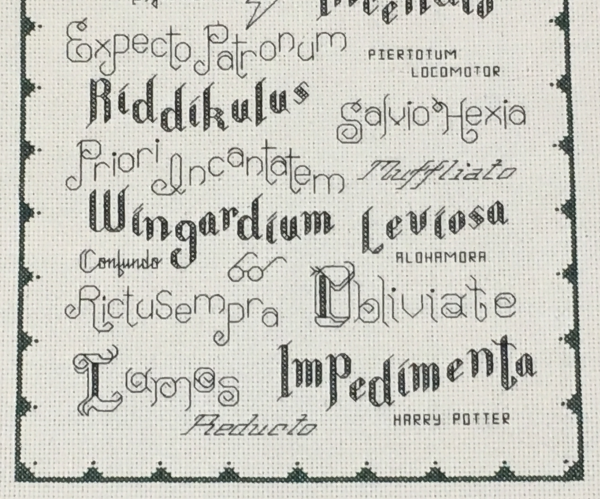 Expecto Patronum
PIERTOTUM
LOCOMOTOR
Riddikulus
Salvio Hexia
Priori Incantatem
Muffliato
Wingardium Leviosa
Confundo
ALOHAMORA
RictuSempra
Obliviate
Lumos
Impedimenta
Reducto
HARRY POTTER